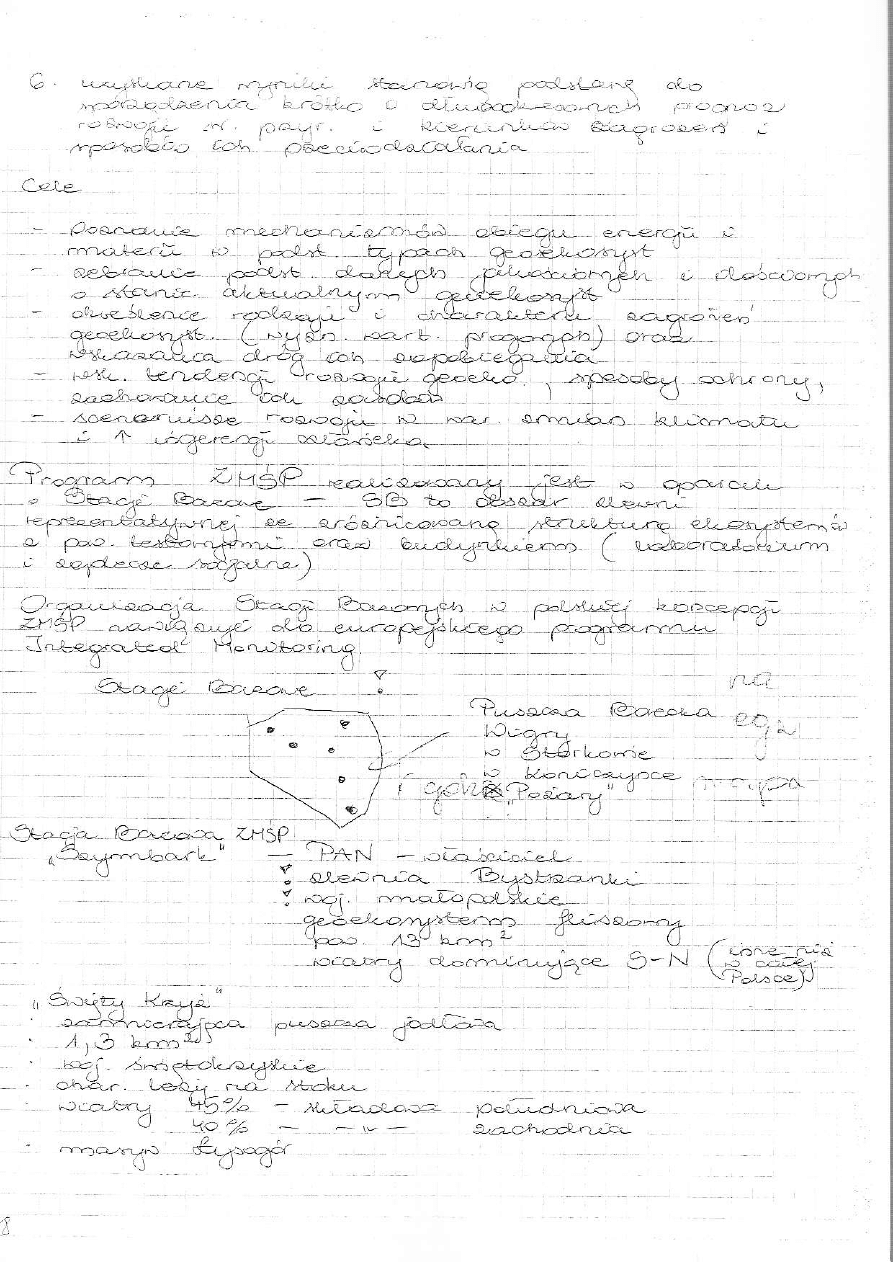 6. uzyskane wyniki stanowią podstawę do
sporządzenia krótko i długookresowych prognoz
rozwoju śr. przyr. i kierunków zagrożeń i
sposobów ich przeciwdziałania
Cele
- Poznanie mechanizmów obiegu energii i
materii w podst typach geoekosyst
- zebranie podst danych jakościowych i ilościowych
o stanie aktualnym geoekosyst
- określenie rodzaju i charakteru zagrożeń
geoekosyst. (wart. progowych) oraz
wskazania dróg ich zapobiegania
- wsk. tendencji rozwoju geoeko, sposoby ochrony,
zachowanie ich zasobów
- scenariusze rozwoju w war. zmian klimatu
i ↑ ingerencji człowieka
Program ZMŚP realizowany jest w oparciu
o Stacje Bazowe - SB to obszar zlewni
reprezentatywnej ze zróżnicowaną strukturą ekosystemów
z pow. testowymi oraz budynkiem (laboratorium
i zaplecze socjalne)
Organizacja Stacji Bazowych w polskiej koncepcji
ZMŚP nawiązuje do europejskiego programu
Integrated Monitoring
Stacje Bazowe !
na
Puszcza Borecka
Wigry
w Storkowie
w Koniczynce
"Pożary"
Stacja Bazowa ZMŚP
"Szymbark" - PAN - właściciel
! zlewnia Bystrzanki
! woj. małopolskie
geoekosystem fliszowy
pow. 13 km²
wiatry dominujące S-N (inne niż
w całej
Polsce)
"Święty Krzyż"
· zamierająca puszcza jodłowa
· 1,3 km²
· woj. świętokrzyskie
· char. leży na stoku
· wiatry 45% - składowa południowa
40% - -"- zachodnia
· masyw Łysogór
8